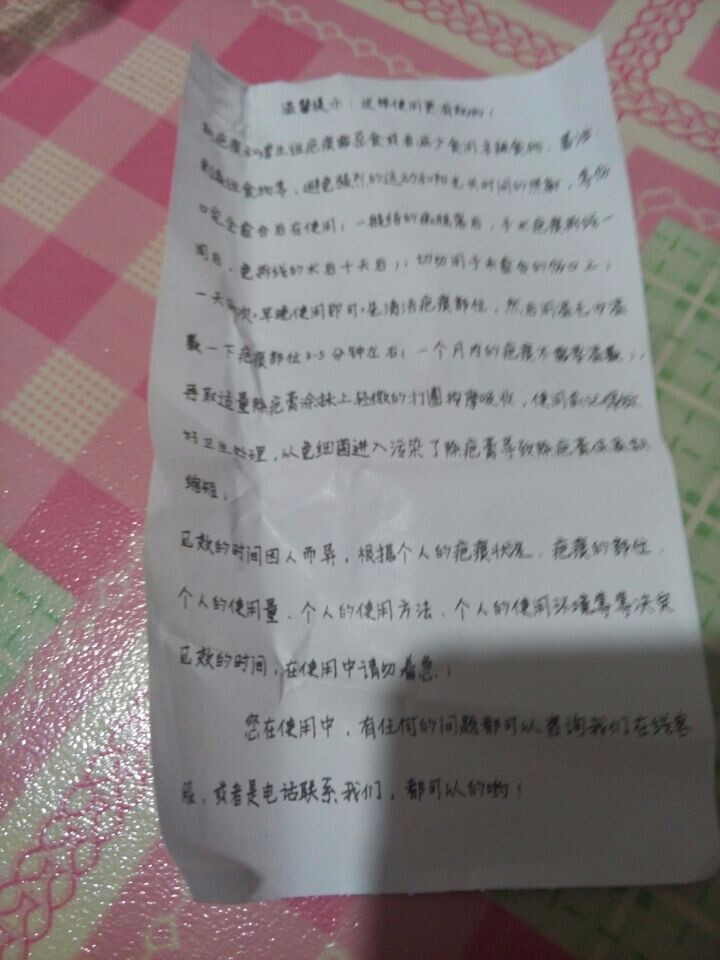 温馨提示：这样使用更有效哟！
疤痕和增生性疤痕都忌食或者减少食用辛辣食物、酱油、
食物等，避免强烈的运动和阳光长时间的照射，等伤
口完全愈合后在使用（一般结的痂脱落后，手术疤痕拆线一
周后，免拆线的术后十天后）；切勿用于未愈合的伤口上；
一天两次，早晚使用即可，先清洁疤痕部位，然后用温毛巾湿
敷一下疤痕部位3-5分钟左右（一个月内的疤痕不需要湿敷），
再取适量除疤膏涂抹上轻微的打圈按摩吸收，使用前记得做
好卫生处理，以免细菌进入污染了除疤膏导致除疤膏保质期
缩短；
见效的时间因人而异，根据个人的疤痕状况、疤痕的部位、
个人的使用量、个人的使用方法、个人的使用环境等等决定
见效的时间，在使用中请勿着急；
您在使用中，有任何的问题都可以咨询我们在线客
服，或者是电话联系我们，都可以的哟！